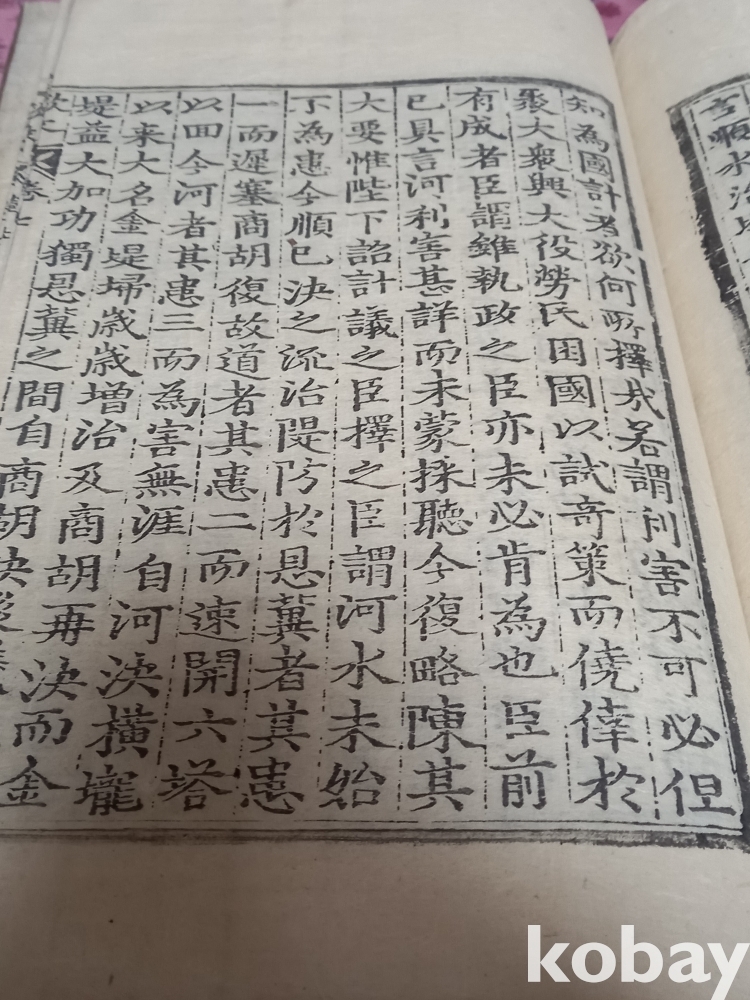 亨順水治堤
知為國計者欲何所擇哉若謂利害不可必但
聚大衆興大役勞民困國以試奇策而僥倖於
有成者臣謂雖執政之臣亦未必肯為也臣前
已具言河利害甚詳而未蒙採聽今復略陳其
大要惟陛下詔計議之臣擇之臣謂河水未始
不為患今順已決之流治隄防於恩冀者其患
一而遲塞商胡復故道者其患二而速開六塔
以回今河者其患三而為害無涯自河決橫壠
以来大名金堤埽歲歲增治及商胡再決而金
堤益大加功獨恩冀之間自商胡決
卷七
kobay